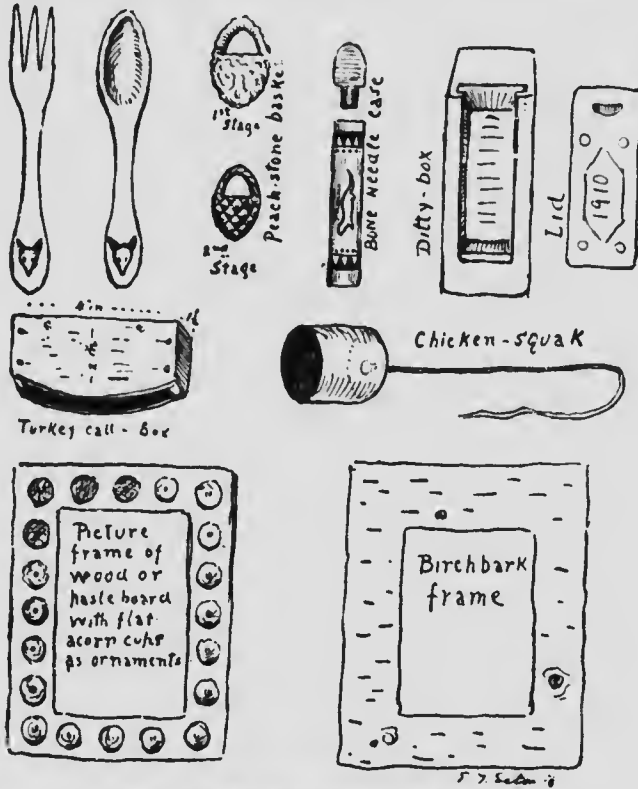 1st
Stage
2nd
Stage
Peach-stone basket
Bone Needle Case
Ditty-box
Lid
1910
4 in
Turkey call - Box
Chicken-Squak
Picture
frame of
wood or
paste board
with flat
acorn cups
as ornaments
Birchbark
frame